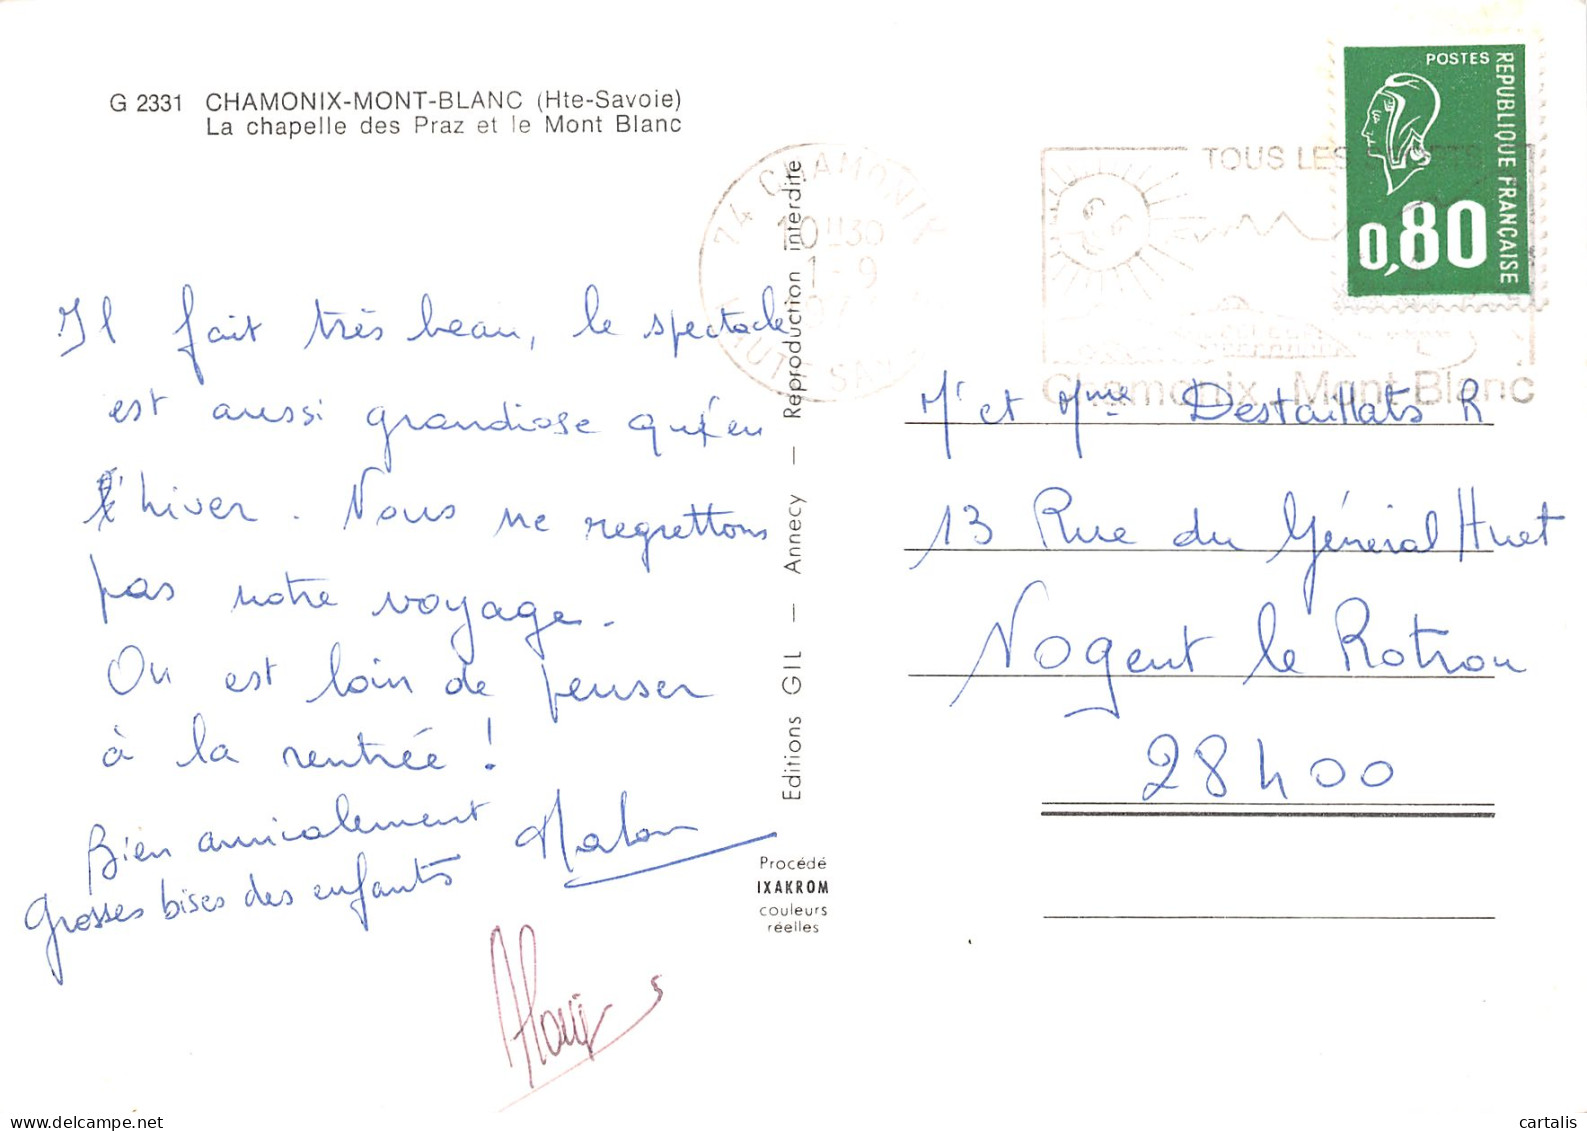 G 2331 CHAMONIX-MONT-BLANC (Hte-Savoie)
La chapelle des Praz et le Mont Blanc
Il fait très beau, le spectacle
est aussi grandiose qu'en
l'hiver. Nous ne regrettons
pas notre voyage.
On est loin de penser
à la rentrée !
Bien amicalement
Grosses bises des enfants
Editions GIL — Annecy — Reproduction interdite
Procédé
IXAKROM
couleurs
réelles
74 CHAMONIX
10H30
1-9
HAUTE SAV
TOUS LES
Chamonix Mont Blanc
POSTES
REPUBLIQUE FRANÇAISE
0,80
Mr et Mme Destaillats R
13 Rue du Général Huet
Nogent le Rotrou
28400
cartalis